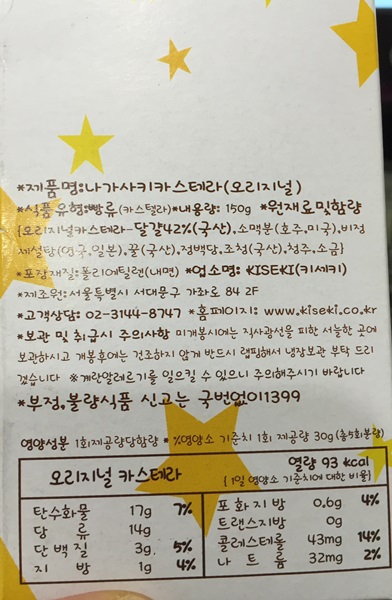 *제품명:나가사키카스테라(오리지널)
*식품유형:빵류(카스텔라)*내용량: 150g *원재료및함량
{오리지널카스테라-달걀42%(국산),소맥분(호주,미국),비정
제설탕(영국,일본),꿀(국산),정백당,조청(국산),청주,소금}
*포장재질:폴리에틸렌(내면) *업소명: KISEKI(키세키)
*제조원:서울특별시 서대문구 가좌로 84 2F
*고객상담: 02-3144-8747 *홈페이지: www.kiseki.co.kr
*보관 및 취급시 주의사항 미개봉시에는 직사광선을 피한 서늘한 곳에
보관하시고 개봉후에는 건조하지 않게 반드시 랩핑해서 냉장보관 부탁 드리
겠습니다 ※계란알레르기를 일으킬 수 있으니 주의해주시기 바랍니다
*부정,불량식품 신고는 국번없이1399
영양성분 1회제공량당함량 * %영양소 기준치 1회 제공량 30g (총5회분량)
오리지널 카스테라 열량 93 kcal
[1일 영양소 기준치에 대한 비율]
탄수화물 17g 7%
당 류 14g
단백질 3g 5%
지 방 1g 4%
포화지방 0.6g 4%
트랜스지방 0g
콜레스테롤 43mg 14%
나 트 륨 32mg 2%